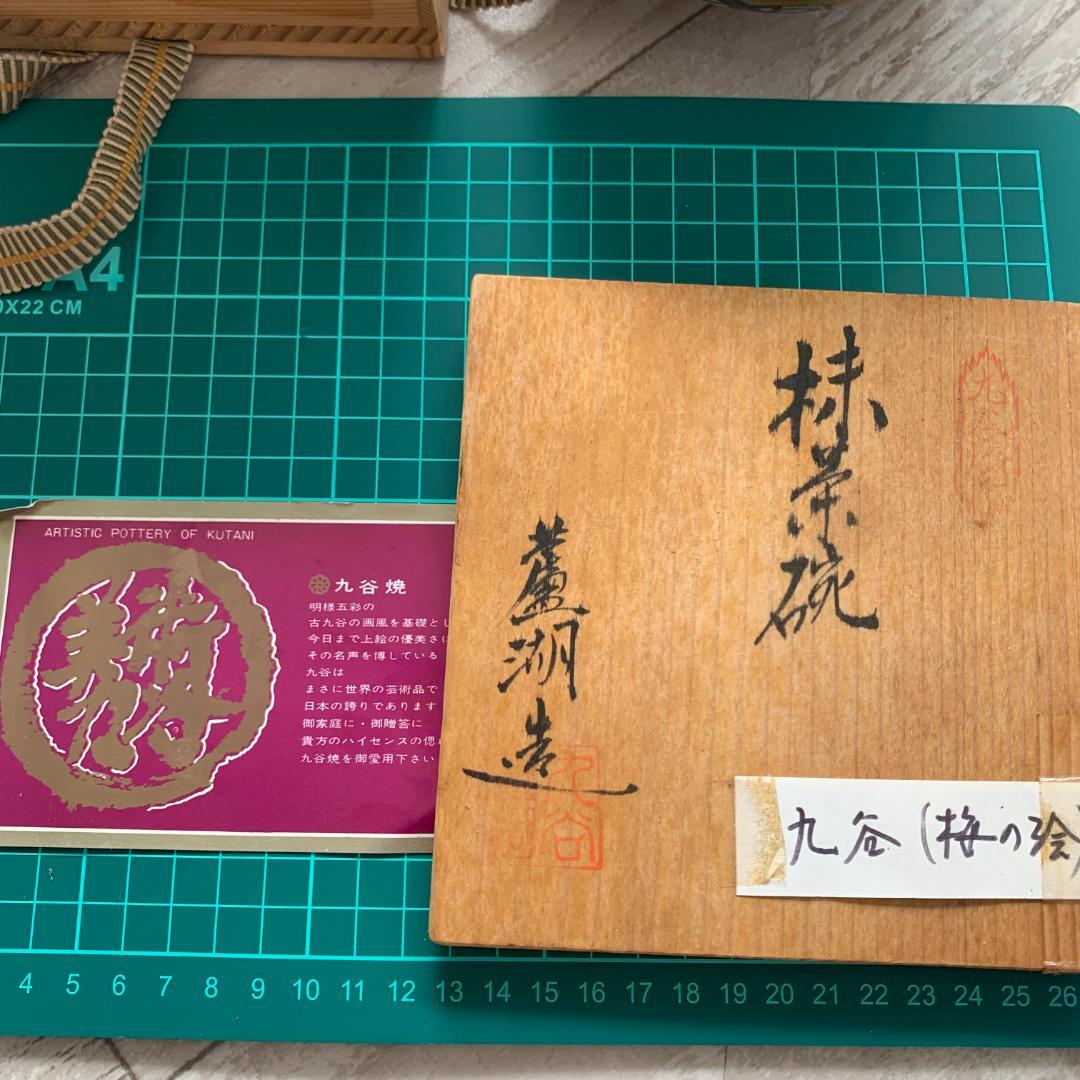 A4
X22 CM
ARTISTIC POTTERY OF KUTANI
九谷焼
明様五彩の
古九谷の画風を基礎とし
今日まで上絵の優美さに
その名声を博している
九谷は
まさに世界の芸術品で
日本の誇りであります
御家庭に・御贈答に
貴方のハイセンスの偲
九谷焼を御愛用下さい
抹茶碗
蘆湖造
九谷
九谷(梅の絵)
4 5 6 7 8 9 10 11 12 13 14 15 16 17 18 19 20 21 22 23 24 25 26